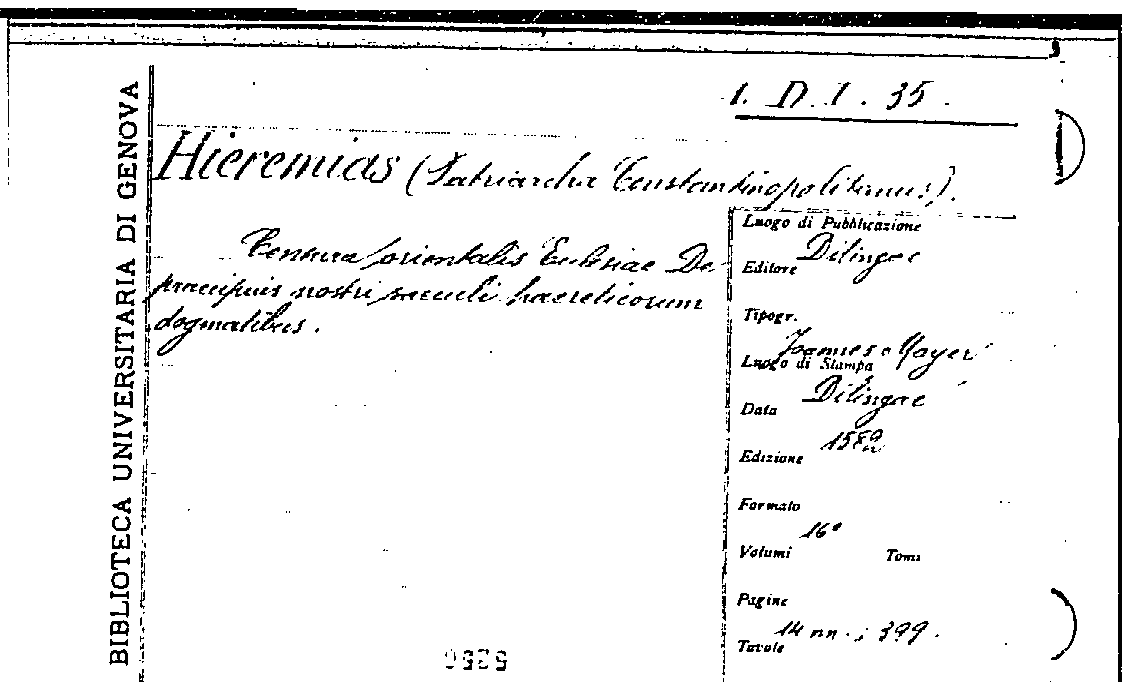 BIBLIOTECA UNIVERSITARIA DI GENOVA
1. D. I. 35.
Hieremias (Patriarcha Constantinopolitanus).
Censura orientalis Ecclesiae De
praecipuis nostri saeculi haereticorum
dogmatibus.
Luogo di Pubblicazione
Dilingae
Editore
Tipogr.
Joannes Mayer
Luogo di Stampa
Dilingae
Data
1582
Edizione
Formato
16°
Volumi Tomi
Pagine
14 nn.; 399.
Tavole